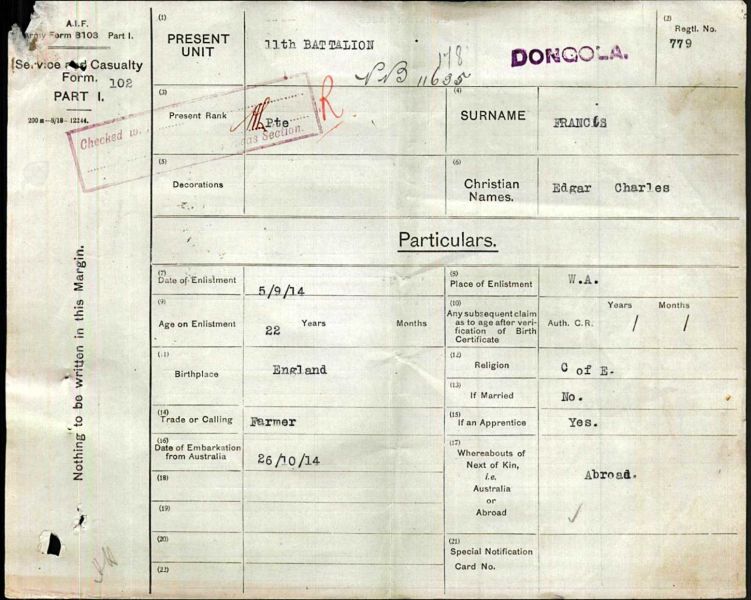 A.I.F.
Army Form B103 Part I.
Service and Casualty
Form. 102
PART I.
200 m—8/18—12244.
Nothing to be written in this Margin.
Checked w.
Section.
(1)
PRESENT
UNIT
11th BATTALION
178
11635
DONGOLA.
(2)
Regtl. No.
779
(3)
Present Rank
Pte
R
(4)
SURNAME
FRANCIS
(5)
Decorations
(6)
Christian
Names.
Edgar Charles
Particulars.
(7)
Date of Enlistment
5/9/14
(8)
Place of Enlistment
W.A.
(9)
Age on Enlistment
22 Years Months
(10)
Any subsequent claim
as to age after veri-
fication of Birth
Certificate
Auth. C.R. / Years / Months
(11)
Birthplace
England
(12)
Religion
C of E.
(13)
If Married
No.
(14)
Trade or Calling
Farmer
(15)
If an Apprentice
Yes.
(16)
Date of Embarkation
from Australia
26/10/14
(17)
Whereabouts of
Next of Kin,
i.e.
Australia
or
Abroad
Abroad.
(18)
(19)
(20)
(21)
Special Notification
Card No.
(22)